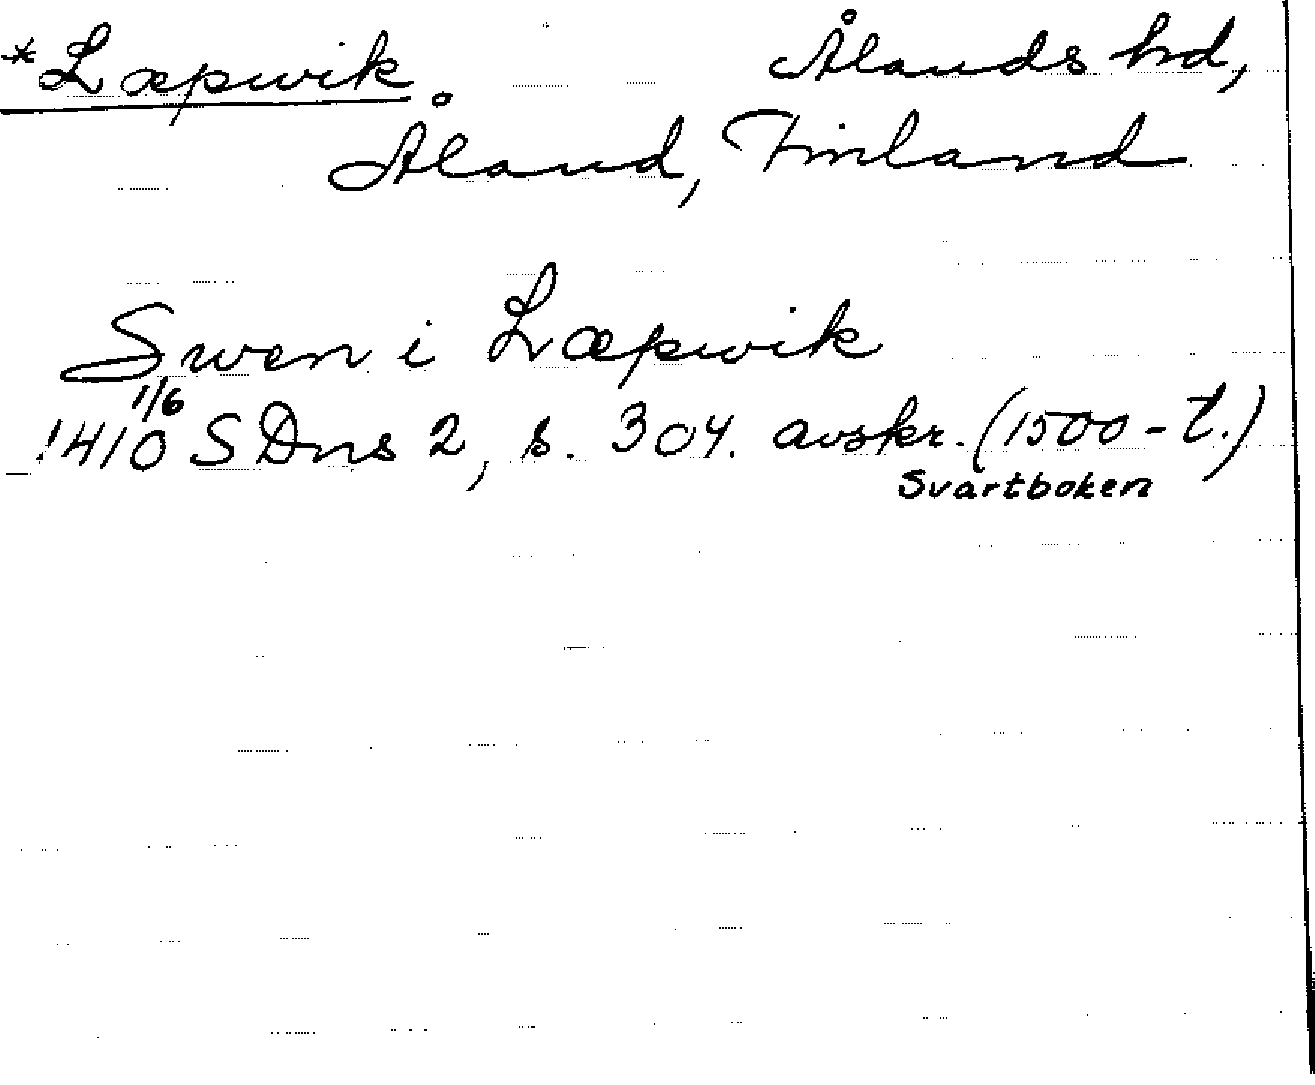 *Læpwik Ålands hd,
Åland, Finland
Swen i Læpwik
1/6
1410 SDns 2, s. 304. avskr. (1500-t.)
Svartboken